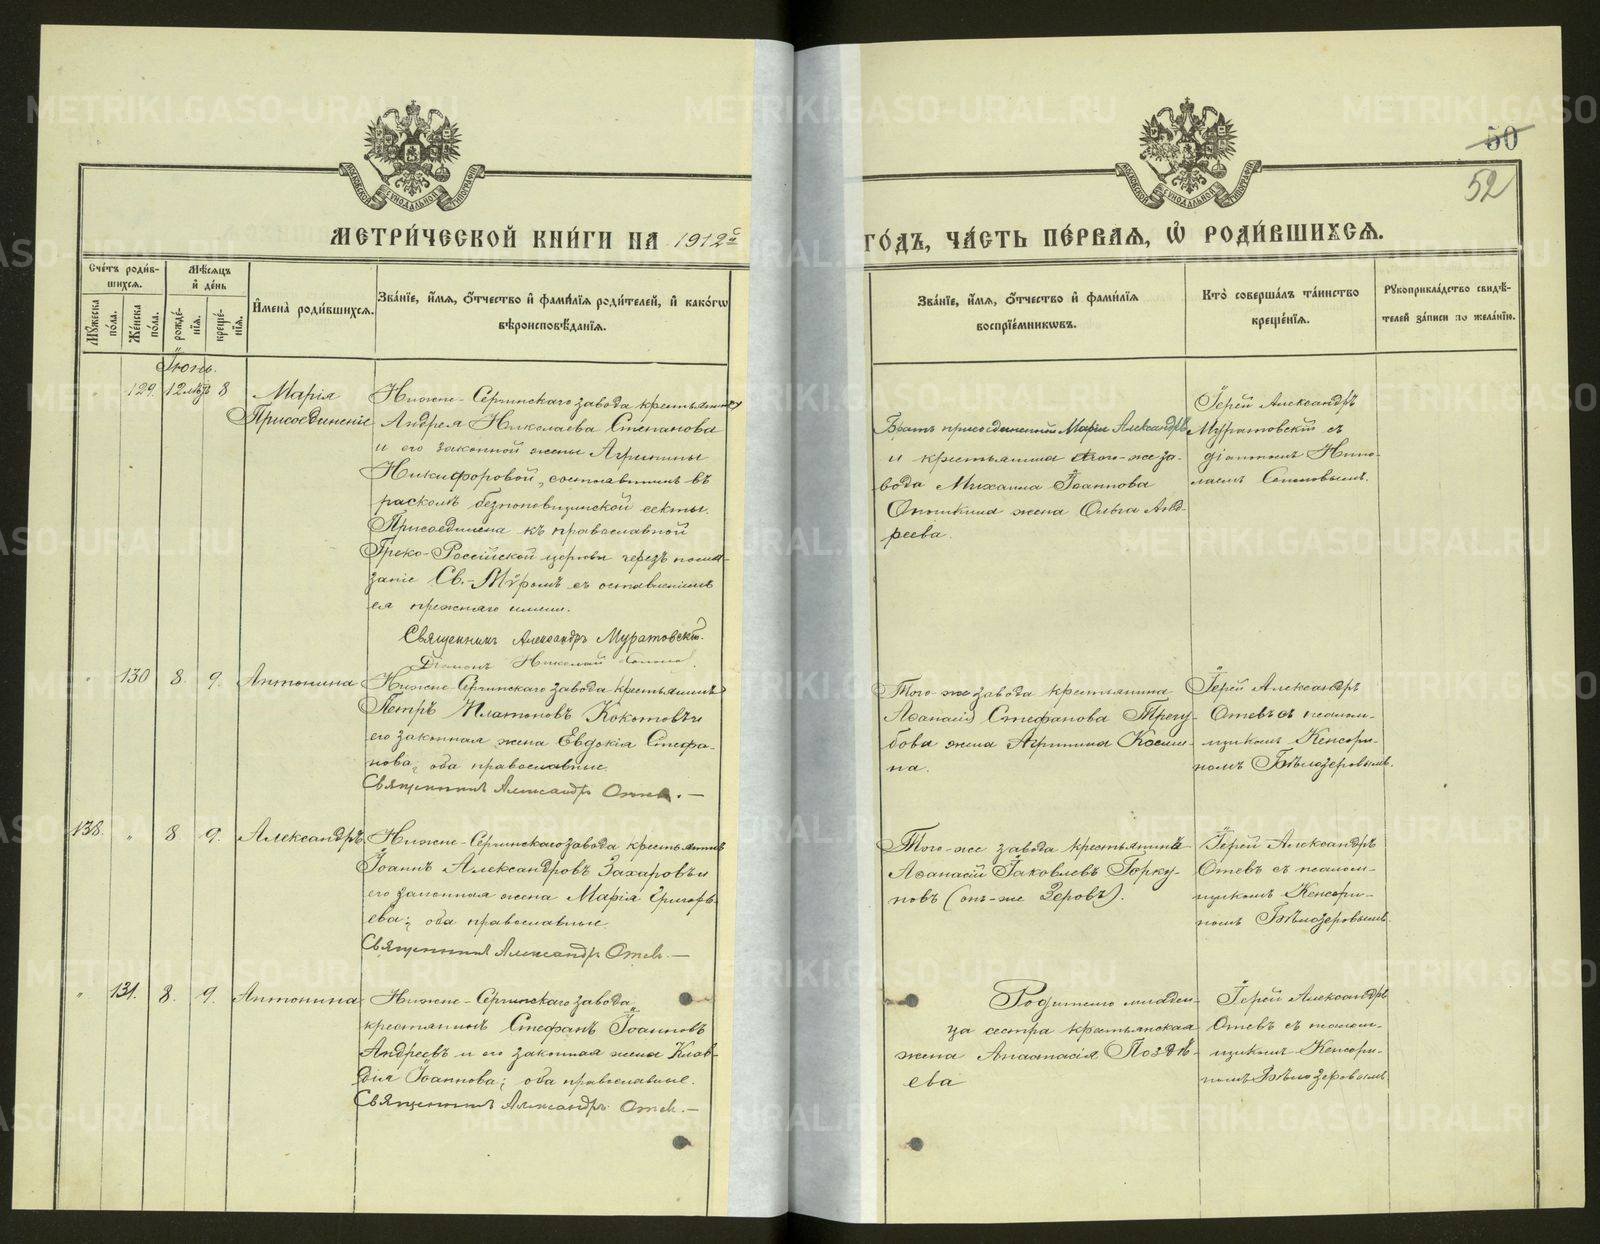 50
52
МОСКОВСКОЙ СѴНОДАЛЬНОЙ ТИПОГРАФІИ
МОСКОВСКОЙ СѴНОДАЛЬНОЙ ТИПОГРАФІИ
МЕТРИ́ЧЕСКОЙ КНИ́ГИ НА 1912 ГО́ДЪ, ЧА́СТЬ ПЕ́РВАѦ, Ѡ҆ РОДИ́ВШИХСѦ.
Сче́тъ роди́в-
шихсѧ.
Мꙋ́жеска по́ла.
Же́нска по́ла.
Мѣ́сѧцъ и҆ де́нь
рожде́-нїѧ.
креще́-нїѧ.
И҆мена̀ роди́вшихсѧ.
Зва́нїе, и҆́мѧ, ѻ҆́тчество и҆ фами́лїѧ роди́телей, и҆ како́гѡ
вѣроисповѣ́данїѧ.
Зва́нїе, и҆́мѧ, ѻ҆́тчество и҆ фами́лїѧ
воспрїе́мникѡвъ.
Кто̀ соверша́лъ та́инство
креще́нїѧ.
Рꙋкоприкла́дство свидѣ́-
телей за́писи по жела́нїю.
Іюнь.
129. 12 лѣтъ 8 Марія
Присоединеніе
Нижне-Сергинскаго завода крестьянина
Андрея Николаева Степанова
и его законной жены Агрипины
Никифоровой, состоявшимъ въ
расколѣ безпоповщинской секты.
Присоединена къ православной
Греко-Россійской церкви чрезъ пома-
заніе Св. Мѵромъ съ оставленіемъ
ея прежняго имени.
Священникъ Александръ Муратовскій.
Діаконъ Николай
Братъ присоединенной Маріи Александръ
и крестьянина того-же за-
вода Михаила Іоаннова
жена Ольга Анд-
реева.
Іерей Александръ
Муратовскій съ
діакономъ Нико-
лаемъ
" 130 8. 9. Антонина
Нижне-Сергинскаго завода крестьянинъ
Петръ Платоновъ Кокотовъ и
его законная жена Евдокія Стефа-
нова, оба православные.
Священникъ Александръ Отевъ.—
Того-же завода крестьянина
Аѳанасія Стефанова Трегу-
бова жена Агрипина Косми-
на.
Іерей Александръ
Отевъ съ псалом-
щикомъ Кенсори-
номъ Бѣлозеровымъ.
138. " 8 9. Александръ
Нижне-Сергинскаго завода крестьянинъ
Іоаннъ Александровъ Захаровъ и
его законная жена Марія Григорь-
ева; оба православные.
Священникъ Александръ Отевъ.—
Того-же завода крестьянинъ
Аѳанасій Іаковлевъ Горку-
новъ (онъ-же Зеровъ).
Іерей Александръ
Отевъ съ псалом-
щикомъ Кенсори-
номъ Бѣлозеровымъ.
" 131. 8. 9. Антонина
Нижне-Сергинскаго завода
крестьянинъ Стефанъ Іоанновъ
Андреевъ и его законная жена Клав-
дія Іоаннова; оба православные.
Священникъ Александръ Отевъ.—
Родителю младен-
ца сестра крестьянская
жена Анастасія Поздѣ-
ева
Іерей Александръ
Отевъ съ псалом-
щикомъ Кенсори-
номъ Бѣлозеровымъ